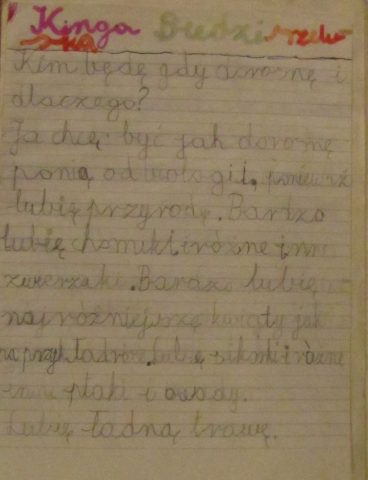 Kinga Biedrzi
ska
Kim będę gdy dorosnę i
dlaczego?
Ja chcę być jak dorosnę
panią od biologii, ponieważ
lubię przyrodę. Bardzo
lubię chomiki i różne inne
zwierzaki. Bardzo lubię
najróżniejsze kwiaty jak
na przykład róże. Lubię sikorki i różne
inne ptaki i owady.
Lubię ładną trawę.